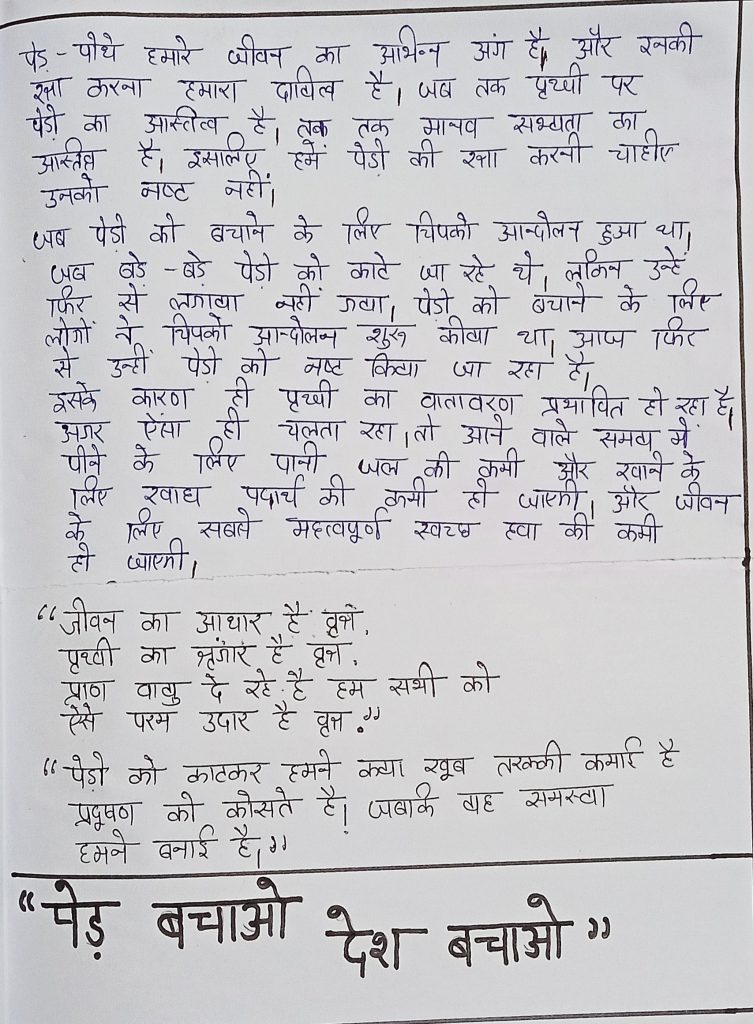 पेड़ - पौधे हमारे जीवन का अभिन्न अंग है, और इनकी
रक्षा करना हमारा दायित्व है, जब तक पृथ्वी पर
पेड़ो का अस्तित्व है, तब तक मानव सभ्यता का
अस्तित्व है, इसलिए हमें पेड़ो की रक्षा करनी चाहीए
उनको नष्ट नहीं,
जब पेड़ो को बचाने के लिए चिपको आन्दोलन हुआ था,
जब बड़े - बड़े पेड़ो को काटे जा रहे थे, लेकिन उन्हें
फिर से लगाया नहीं गया, पेड़ो को बचाने के लिए
लोगों ने चिपको आन्दोलन शुरू कीया था, आज फिर
से उन्हीं पेड़ो को नष्ट किया जा रहा है,
इसके कारण ही पृथ्वी का वातावरण प्रभावित हो रहा है,
अगर ऐसा ही चलता रहा, तो आने वाले समय में
पीने के लिए पानी जल की कमी और खाने के
लिए खाद्य पदार्थ की कमी हो जाएगी, और जीवन
के लिए सबसे महत्वपूर्ण स्वच्छ हवा की कमी
हो जाएगी,
“जीवन का आधार है वृक्ष,
पृथ्वी का श्रृंगार है वृक्ष,
प्राण वायु दे रहे है हम सभी को
ऐसे परम उदार है वृक्ष.”
“पेड़ो को काटकर हमने क्या खूब तरक्की कमाई है
प्रदूषण को कोसते है, जबकि यह समस्या
हमने बनाई है,”
“पेड़ बचाओ देश बचाओ”